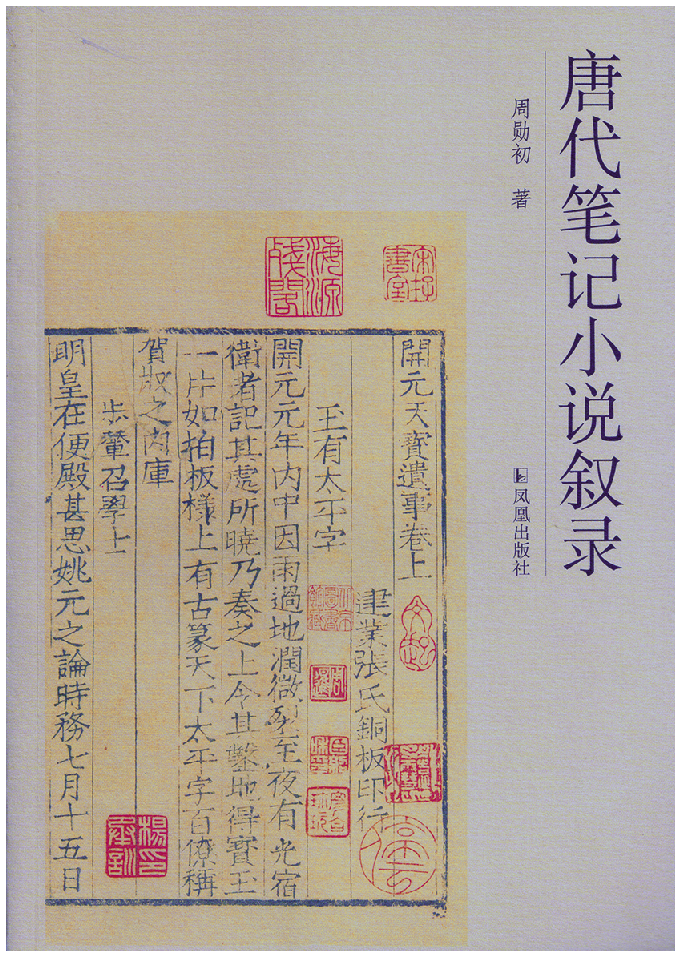 唐代笔记小说叙录
周勋初 著
凤凰出版社
開元天寶遺事卷上
建業張氏銅板印行
玉有太平字
開元元年内中因雨過地潤微裂至夜有光宿
衛者記其處所曉乃奏之上令其鑿地得寶玉
一片如拍板樣上有古篆天下太平字百僚稱
賀收之内庫
步輦召學士
明皇在便殿甚思姚元之論時務七月十五日
海源殘閣
楊印承訓